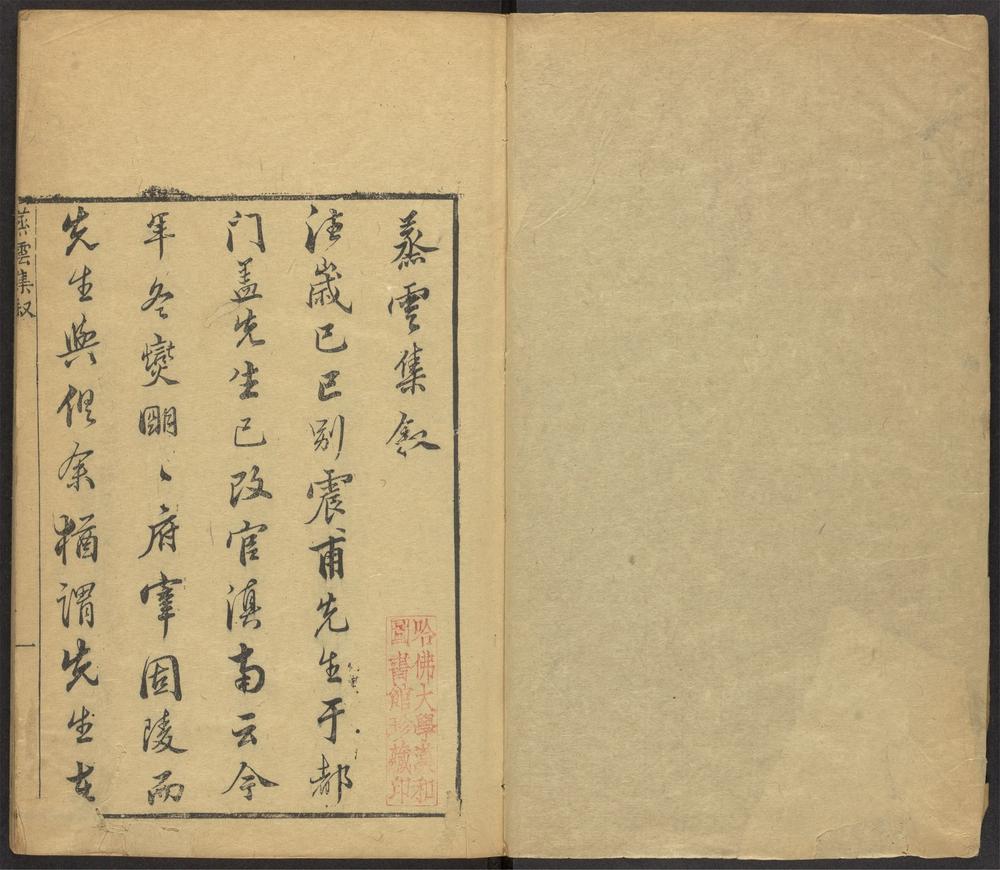 蒸雲集叙
往歲己巳别震甫先生于都
门盖先生已改官滇南云今
年冬爕明〻府宰固陵而
先生與俱余猶謂先生在
蒸雲集叙
一
哈佛大學漢和
圖書館珍藏印